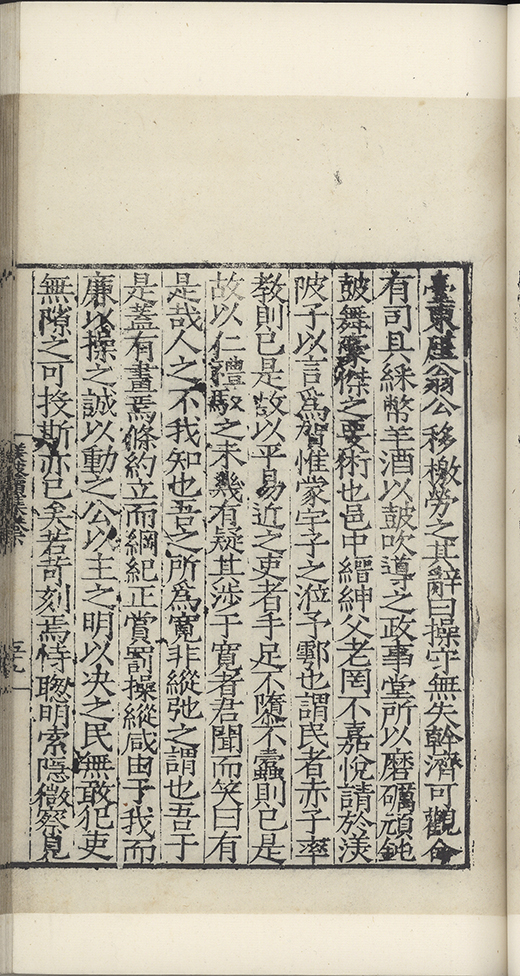 臺東厓翁公移檄勞之其辭曰操守無失幹濟可觀令
有司具綵幣羊酒以鼓吹導之政事堂所以磨礪頑鈍
鼓舞豪傑之要術也邑中縉紳父老罔不嘉悅請於渼
陂子以言爲賀惟蒙宇子之涖予鄠也謂民者赤子率
教則已是故以平易近之吏者手足不隳不蠹則已是
故以仁禮馭之未幾有疑其涉于寬者君聞而笑曰有
是哉人之不我知也吾之所爲寬非縱弛之謂也吾于
是蓋有畫焉條約立而綱紀正賞罰操縱咸由于我而
廉以操之誠以動之公以主之明以决之民無敢犯吏
無隙之可投斯亦已矣若苛刻焉恃聰明索隱微察見